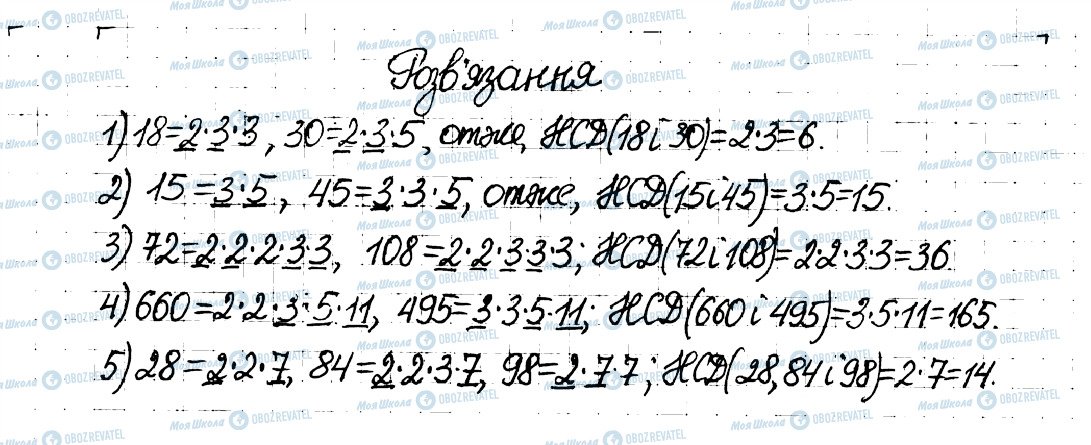 Розв'язання
1) 18=2·3·3, 30=2·3·5, отже, НСД(18 і 30)=2·3=6.
2) 15=3·5, 45=3·3·5, отже, НСД(15 і 45)=3·5=15.
3) 72=2·2·2·3·3, 108=2·2·3·3·3; НСД(72 і 108)=2·2·3·3=36
4) 660=2·2·3·5·11, 495=3·3·5·11; НСД(660 і 495)=3·5·11=165.
5) 28=2·2·7, 84=2·2·3·7, 98=2·7·7; НСД(28, 84 і 98)=2·7=14.
Моя Школа OBOZREVATEL